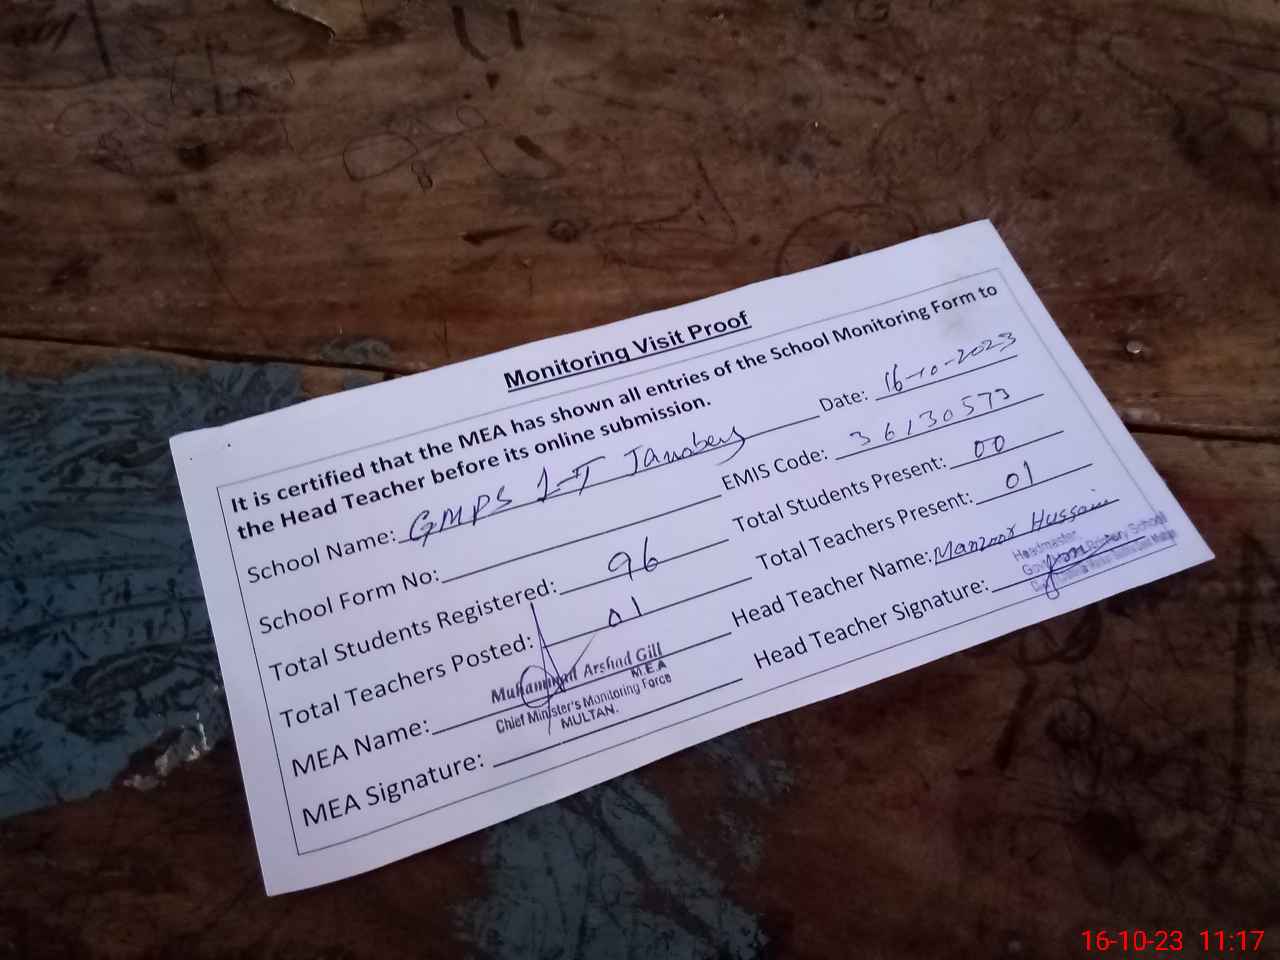 Monitoring Visit Proof
It is certified that the MEA has shown all entries of the School Monitoring Form to
the Head Teacher before its online submission.
School Name: GMPS 1-T Date: 16-10-2023
School Form No: EMIS Code: 36130573
Total Students Registered: 96 Total Students Present: 00
Total Teachers Posted: 01 Total Teachers Present: 01
MEA Name: Muhammad Arshad Gill Head Teacher Name: Manzoor Hussain
M.E.A
Chief Minister's Monitoring Force
MULTAN.
MEA Signature: Head Teacher Signature:
Headmaster
Primary School
16-10-23 11:17